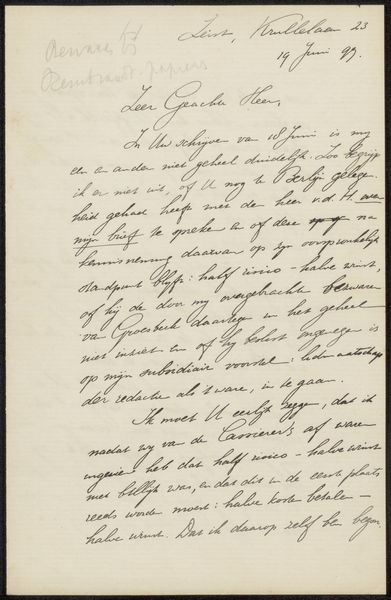 Bewaren bij
Rembrandt-papieren
Zeist, Krullelaan 23
19 Juni 99.
Zeer Geachte Heer,
In Uw schrijven van 18 Juni is mij
een en ander niet geheel duidelijk. Zoo begrijp
ik er niet uit, of U nog te Berlijn gelegen-
heid gehad heeft met den heer v.d. H. over
mijn brief te spreken en of deze na
kennisneming daarvan op zijn oorspronkelijk
standpunt blijft: half risico - halve winst,
of hij de door mij overgebrachte bezwaren
van Groesbeek daartegen in het geheel
niet inziet en of hij beslist ongenegen is
op mijn subsidiair voorstel:
der redactie als 't ware, in te gaan.
Ik moet U eerlijk zeggen, dat ik
nadat wij van de Cassirer's af waren
ingezien heb dat half risico - halve winst
niet billijk was, en dat dit in de eerste plaats
reeds worden moest: halve kosten betalen -
halve winst. Dat ik daarop zelf ben begon-